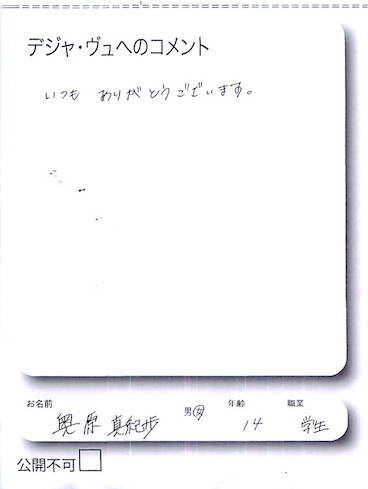 デジャ・ヴュへのコメント
いつも ありがとうございます。
お名前 男女 年齢 職業
奥原 真紀歩 14 学生
公開不可